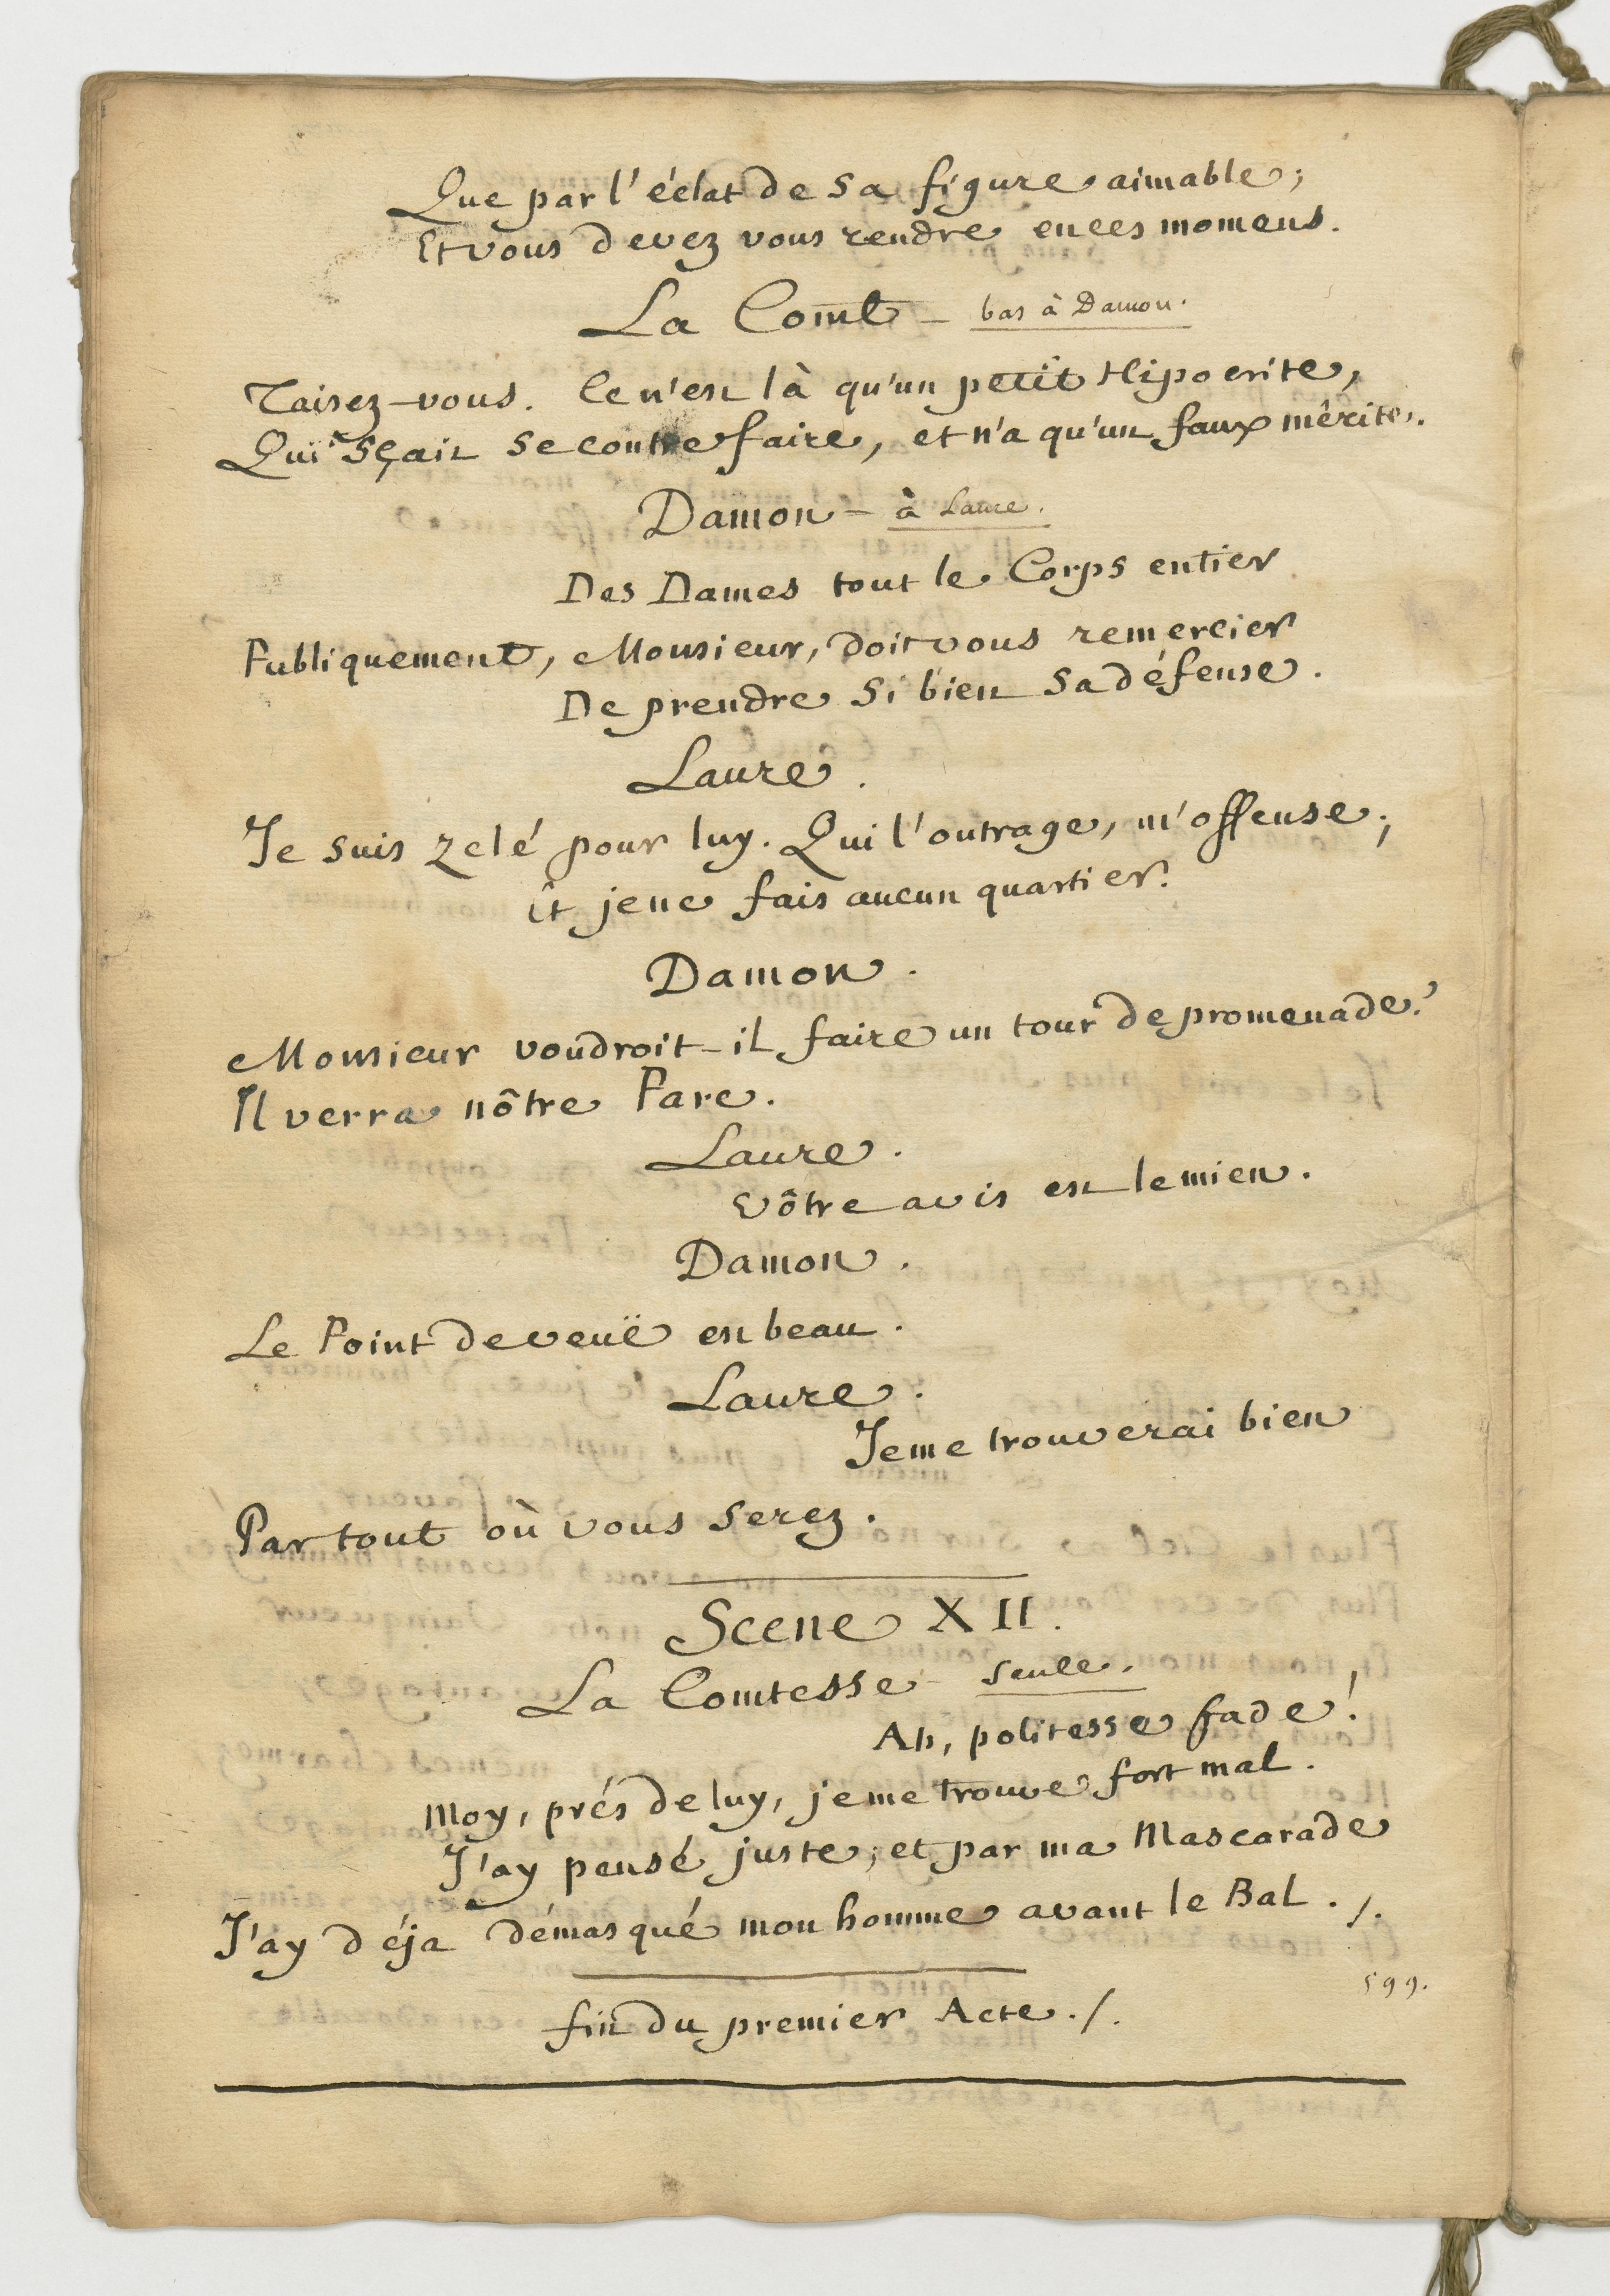 Que par l'éclat de sa figure aimable;
Et vous devez vous rendre en ces momens.
La Comt^e – bas à Damon.
Taisez-vous. Ce n'est là qu'un petit Hipocrite,
Qui sçait se contrefaire, et n'a qu'un faux mérite.
Damon – à Laure.
Des Dames tout le Corps entier
Publiquement, Monsieur, doit vous remercier
De prendre si bien sa défense.
Laure.
Je suis zelé pour luy. Qui l'outrage, m'offense;
Et je ne fais aucun quartier.
Damon.
Monsieur voudroit-il faire un tour de promenade?
Il verra nôtre Parc.
Laure.
Vôtre avis est le mien.
Damon.
Le Point de veuë est beau.
Laure.
Je me trouverai bien
Partout où vous serez.
Scene XII.
La Comtesse seule.
Ah, politesse fade!
Moy, prés de luy, je me trouve fort mal.
J'ay pensé juste; et par ma Mascarade
J'ay déja démasqué mon homme avant le Bal ./.
599.
fin du premier Acte./.